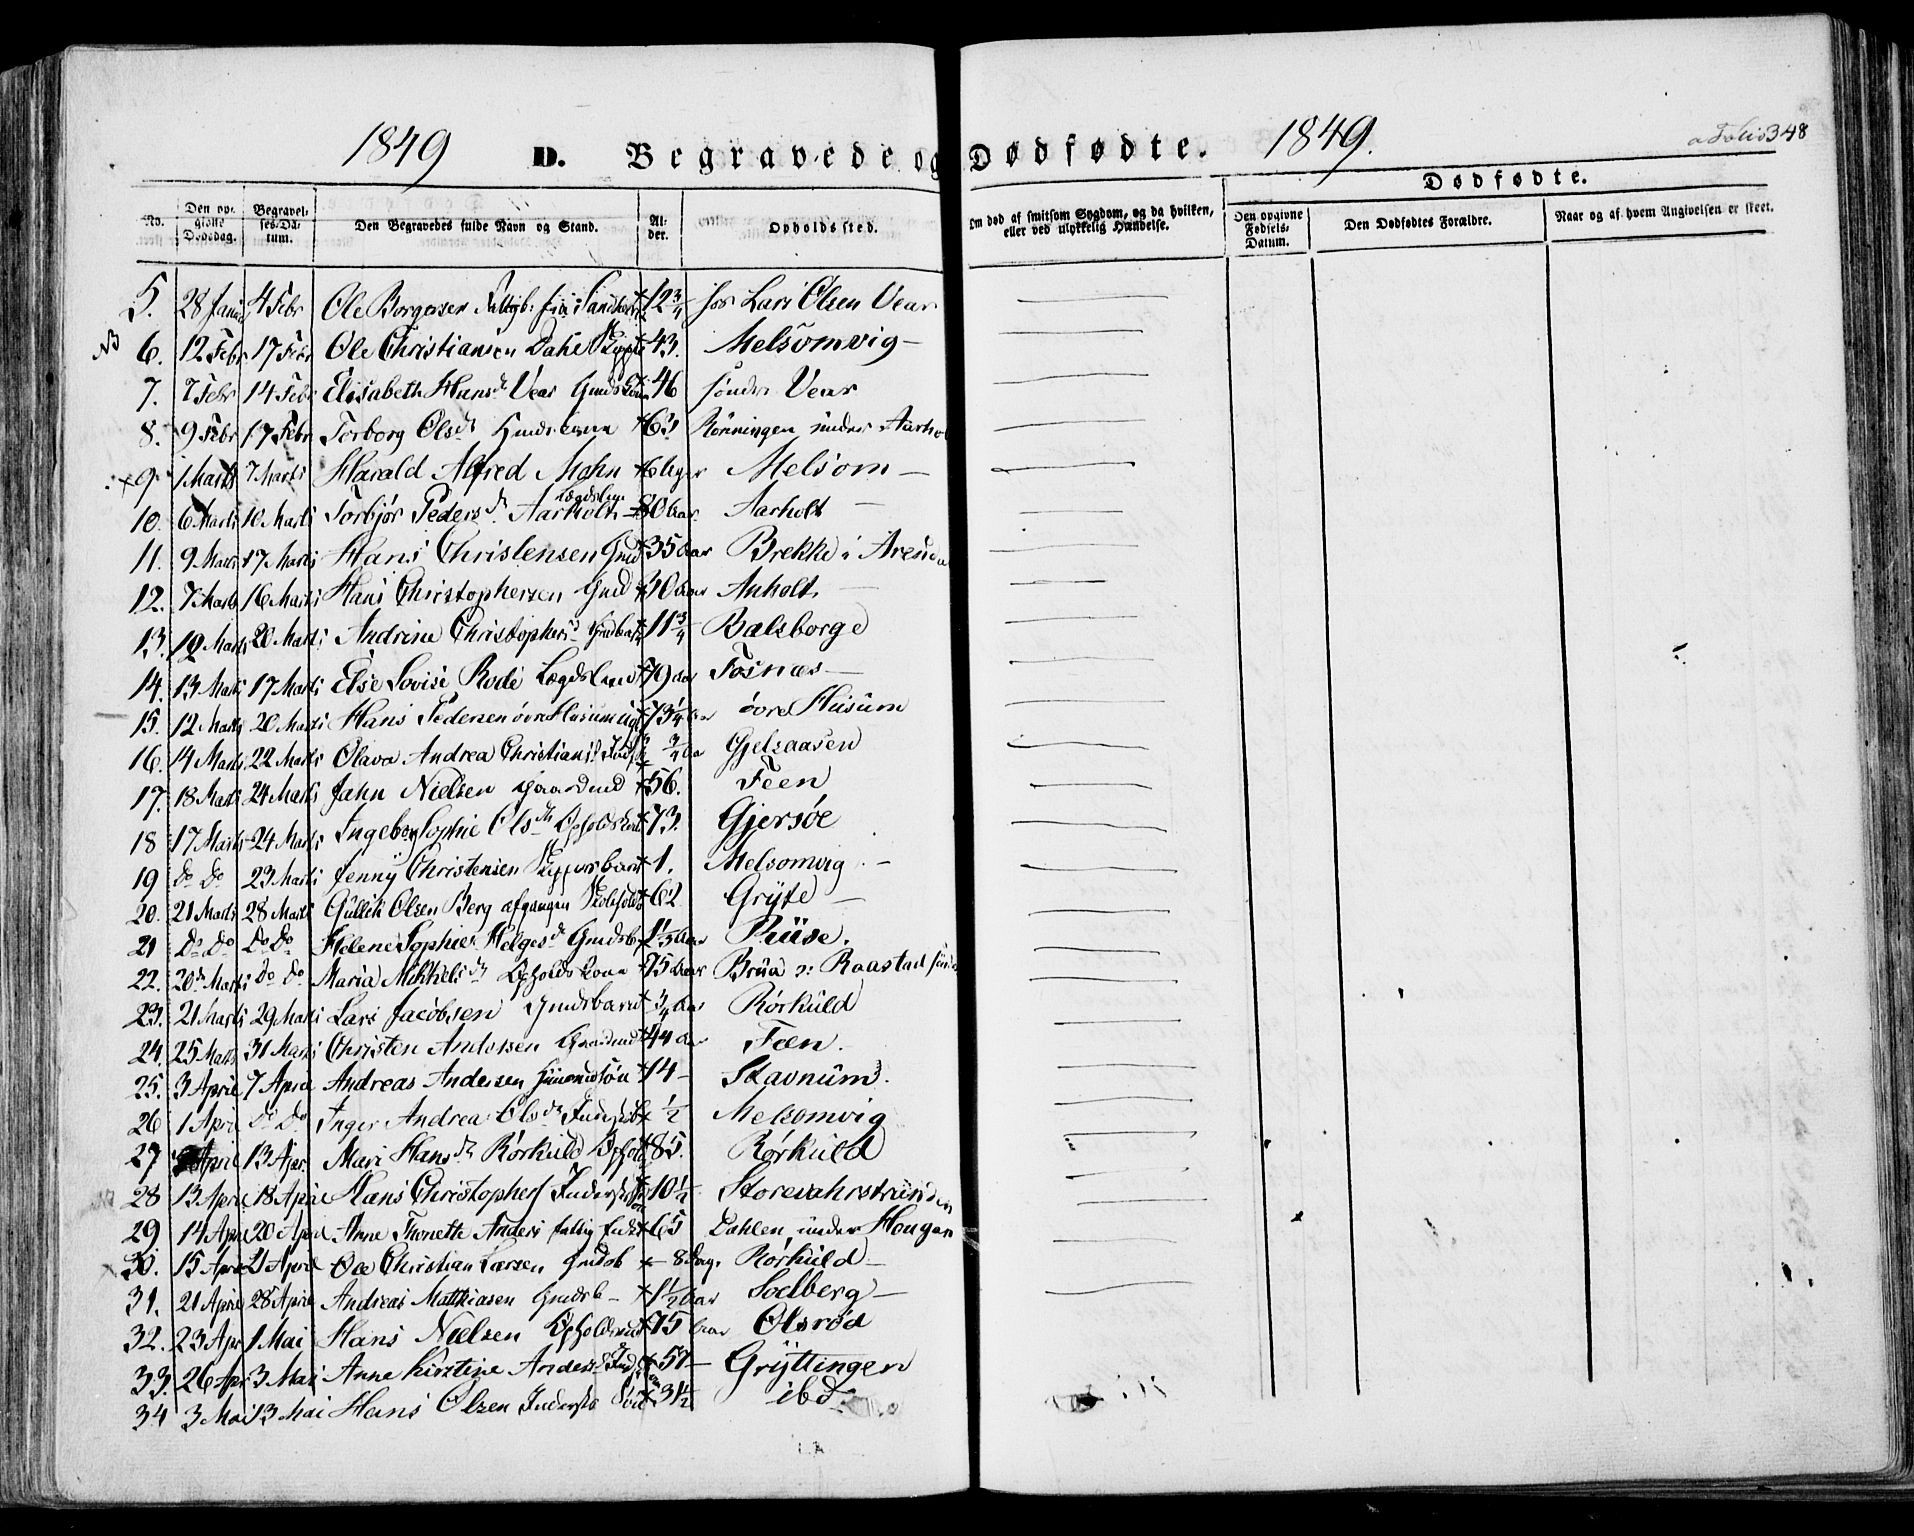 1849 D. Begravede og Dødfødte. 1849. a Folio 348
Dødfødte.
No. Den opgivne Dødsdag. Begravelses-Datum. Den Begravedes fulde Navn og Stand. Alder. Opholdssted. Om død af smitsom Sygdom, og da hvilken, eller ved ulykkelig Hændelse. Den opgivne Fødsels-Datum. Den Dødfødtes Forældre. Naar og af hvem Angivelsen er skeet.
5. 28 Janu 4 Febr Ole Borgersen 12 3/4 hos Lars Olsen Vear
NB 6. 12 Febr 17 Febr Ole Christiansen Dahl 43. Melsomvig
7. 7 Febr 14 Febr Elisabeth Hansd Vear Gmdskone 46 søndre Vear
8. 9 Febr 17 Febr Torborg Olsdr 63 Rønningen under Aarho
9. 1 Marts 7 Marts Harald Alfred Mohn 6 Uger Melsom
10. 6 Marts 10 Marts Torbjør Pedersdr Aarholt Lægdslem 80 aar Aarholt
11. 9 Marts 17 Marts Hans Christensen Gmd 35 aar Brekke i Aren
12. 7 Marts 16 Marts Hans Christophersen Gmd 30 aar Anholt
13. 12 Marts 20 Marts Andrine Christophersd Gmdbarn 11 3/4 Bælsborge
14. 13 Marts 17 Marts Else Lovise Rode Lægdslem 79 aar Fosnæs
15. 12 Marts 20 Marts Hans Pedersen øvre Husum 73 1/4 aar øvre Husum
16. 14 Marts 22 Marts Olava Andrea Christiansd 3/4 aa Gjelsaasen
17. 18 Marts 24 Marts Jahn Nielsen Gaardmd 56. Feen
18 17 Marts 24 Marts Ingeborg Sophie Olsdr Opholdskone 73. Gjersøe
19 do do 23 Marts Jenny Christensen Skippersbarn 1. Melsomvig
20. 21 Marts 28 Marts Gullik Olsen Berg afgangen 62 Gryte
21 Do Do Do Do Helene Sophie Helgesdr Gmdsb 1 1/3 aar Rüse.
22. 20de Marts do do Maria Mikkelsdr Opholdskone 75 aar Brüa v: Raastad
23. 21 Marts 29 Marts Lars Jacobsen Gmdsbarn 3/4 aar Rørküld
24. 25 Marts 31 Marts Christen Andersen Gaardmd 44 aar Fæn.
25. 3 April 7 April Andreas Andersen 14 Stavnüm.
26 1 Apri do do Inger Andrea Olsdr 1/2 Melsomvig
27 April 13 Apr. Mari Hansdr Rørküld 85. Rørküld
28 13 April 18 April Hans Christophers 10 1/2 Storevahrstründen
29 14 April 20 April Anne Thonette Anders fattig 65 Dahlen under Hougen
30. 15 April 21 April Ole Christian Larsen Gmdsb 8 Dag. Rørküld
31. 21 April 28 April Andreas Matthiasen Gmdsb 1 1/2 aar Soelberg
32. 23 Apr 1 Mai Hans Nielsen Opholdsmd 75 aar Olsrød
33. 26 Apr 3 Mai Anne Kirstine Andersd 57 Gryttingen
34 3 Mai 13 Mai Hans Olsen Inderste Søn 3 1/2 ibd.